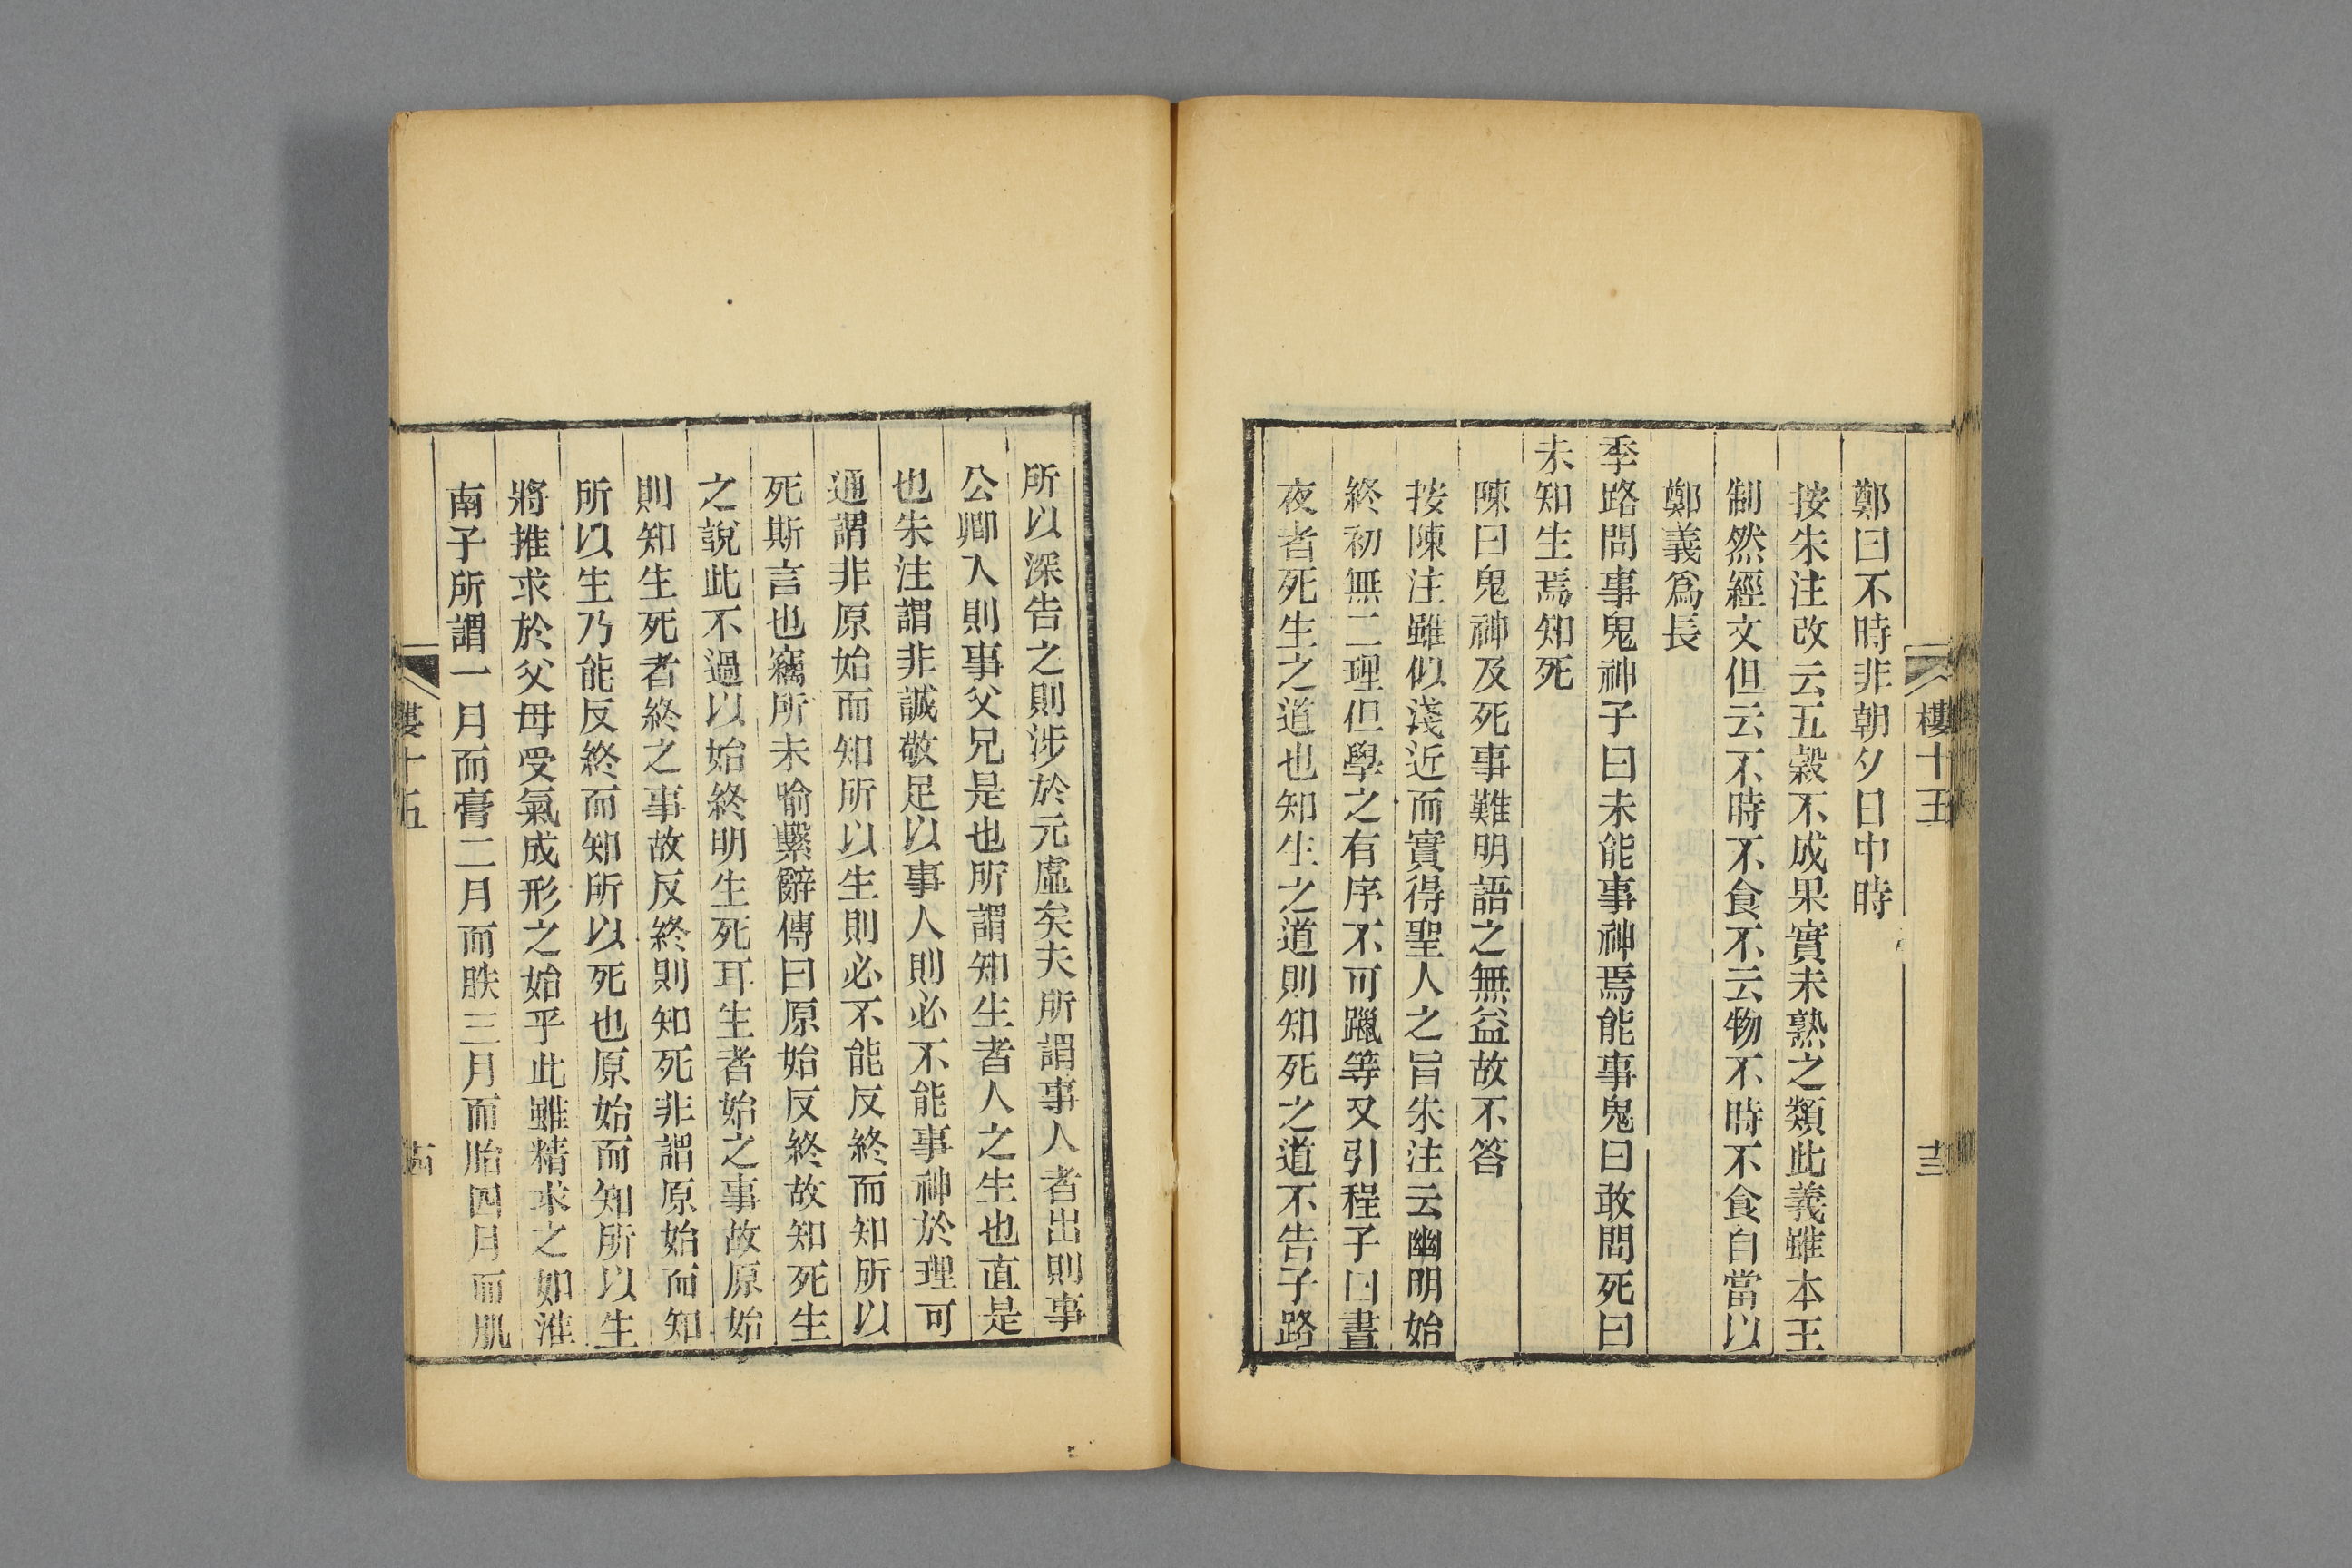 樓十五
十三
鄭曰不時非朝夕日中時
按朱注改云五穀不成果實未熟之類此義雖本王
制然經文但云不時不食不云物不時不食自當以
鄭義爲長
季路問事鬼神子曰未能事神焉能事鬼曰敢問死曰
未知生焉知死
陳曰鬼神及死事難明語之無益故不答
按陳注雖似淺近而實得聖人之旨朱注云幽明始
終初無二理但學之有序不可躐等又引程子曰晝
夜者死生之道也知生之道則知死之道不告子路
所以深告之則涉於元虛矣夫所謂事人者出則事
公卿入則事父兄是也所謂知生者人之生也直是
也朱注謂非誠敬足以事人則必不能事神於理可
通謂非原始而知所以生則必不能反終而知所以
死斯言也竊所未喻繫辭傳曰原始反終故知死生
之說此不過以始終明生死耳生者始之事故原始
則知生死者終之事故反終則知死非謂原始而知
所以生乃能反終而知所以死也原始而知所以生
將推求於父母受氣成形之始乎此雖精求之如淮
南子所謂一月而膏二月而胅三月而胎四月而肌
樓十五
十四